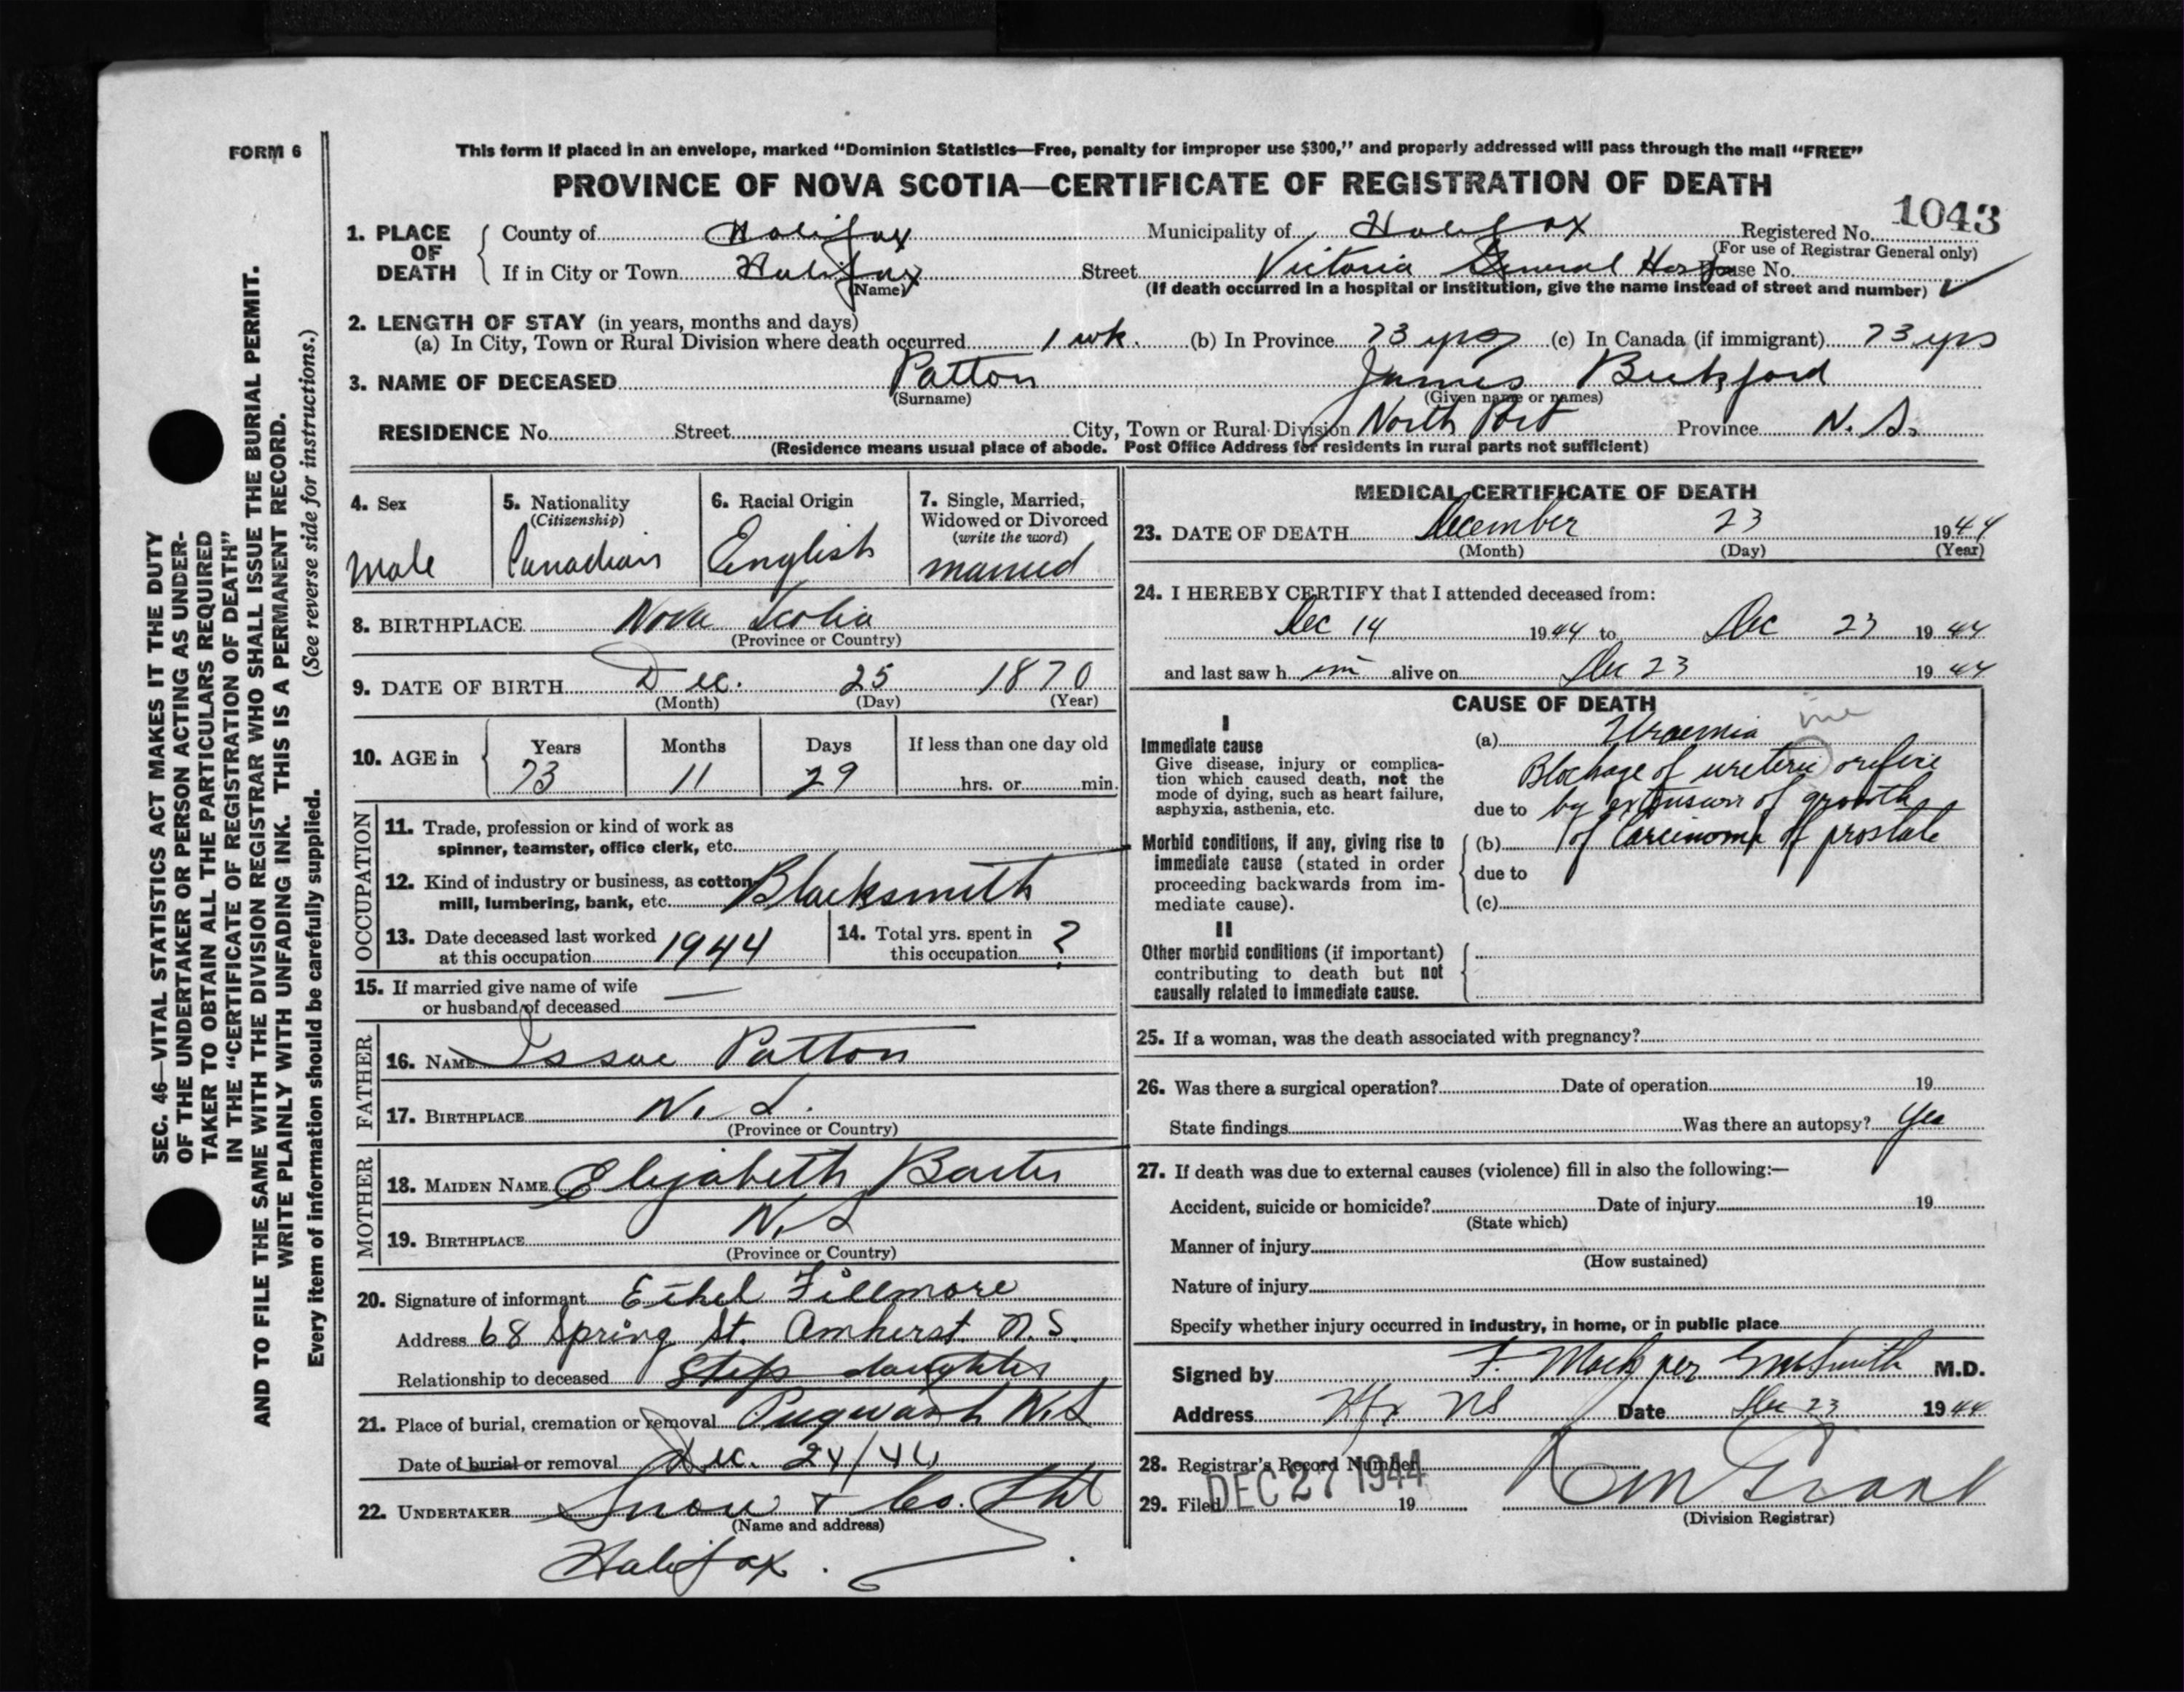 FORM 6
This form if placed in an envelope, marked "Dominion Statistics—Free, penalty for improper use $300," and properly addressed will pass through the mail "FREE"
PROVINCE OF NOVA SCOTIA—CERTIFICATE OF REGISTRATION OF DEATH
1043
1. PLACE OF DEATH County of Halifax Municipality of Halifax Registered No.
(For use of Registrar General only)
If in City or Town Halifax Street Victoria General Hosp House No.
(Name) (If death occurred in a hospital or institution, give the name instead of street and number)
2. LENGTH OF STAY (in years, months and days)
(a) In City, Town or Rural Division where death occurred 1 wk. (b) In Province 73 yrs (c) In Canada (if immigrant) 73 yrs
3. NAME OF DECEASED Patton James
(Surname) (Given name or names)
RESIDENCE No. Street City, Town or Rural Division North Port Province N. S.
(Residence means usual place of abode. Post Office Address for residents in rural parts not sufficient)
4. Sex Male
5. Nationality (Citizenship) Canadian
6. Racial Origin English
7. Single, Married, Widowed or Divorced (write the word) married
8. BIRTHPLACE Nova Scotia
(Province or Country)
9. DATE OF BIRTH Dec. 25 1870
(Month) (Day) (Year)
10. AGE in Years 73 Months 11 Days 29 If less than one day old hrs. or min.
OCCUPATION
11. Trade, profession or kind of work as
spinner, teamster, office clerk, etc.
12. Kind of industry or business, as cotton
mill, lumbering, bank, etc. Blacksmith
13. Date deceased last worked
at this occupation 1944
14. Total yrs. spent in
this occupation ?
15. If married give name of wife
or husband of deceased —
FATHER
16. NAME Issac Patton
17. BIRTHPLACE N. S.
(Province or Country)
MOTHER
18. MAIDEN NAME Elizabeth
19. BIRTHPLACE N.S
(Province or Country)
20. Signature of informant Ethel Fillmore
Address 68 Spring St. Amherst N.S.
Relationship to deceased Step daughter
21. Place of burial, cremation or removal Pugwash N.S
Date of burial or removal Dec. 24/44
22. UNDERTAKER Snow & Co. Ltd
(Name and address)
Halifax.
MEDICAL CERTIFICATE OF DEATH
23. DATE OF DEATH December 23 1944
(Month) (Day) (Year)
24. I HEREBY CERTIFY that I attended deceased from:
Dec 14 1944 to Dec 23 1944
and last saw h im alive on Dec 23 1944
CAUSE OF DEATH
I
Immediate cause
Give disease, injury or complication which caused death, not the mode of dying, such as heart failure, asphyxia, asthenia, etc.
(a) Uraemia
Blockage of ureteric orifice
due to by extension of growth
Morbid conditions, if any, giving rise to immediate cause (stated in order proceeding backwards from immediate cause).
(b) of Carcinoma of prostate
due to
(c)
II
Other morbid conditions (if important) contributing to death but not causally related to immediate cause.
25. If a woman, was the death associated with pregnancy?
26. Was there a surgical operation? Date of operation 19
State findings Was there an autopsy? Yes
27. If death was due to external causes (violence) fill in also the following:—
Accident, suicide or homicide? Date of injury 19
(State which)
Manner of injury
(How sustained)
Nature of injury
Specify whether injury occurred in industry, in home, or in public place
Signed by F. Mack per Smith M.D.
Address Hfx NS Date Dec 23 1944
28. Registrar's Record Number
29. Filed DEC 27 1944 19
(Division Registrar)
SEC. 46—VITAL STATISTICS ACT MAKES IT THE DUTY
OF THE UNDERTAKER OR PERSON ACTING AS UNDER-
TAKER TO OBTAIN ALL THE PARTICULARS REQUIRED
IN THE "CERTIFICATE OF REGISTRATION OF DEATH"
AND TO FILE THE SAME WITH THE DIVISION REGISTRAR WHO SHALL ISSUE THE BURIAL PERMIT.
WRITE PLAINLY WITH UNFADING INK. THIS IS A PERMANENT RECORD.
(See reverse side for instructions.)
Every item of information should be carefully supplied.